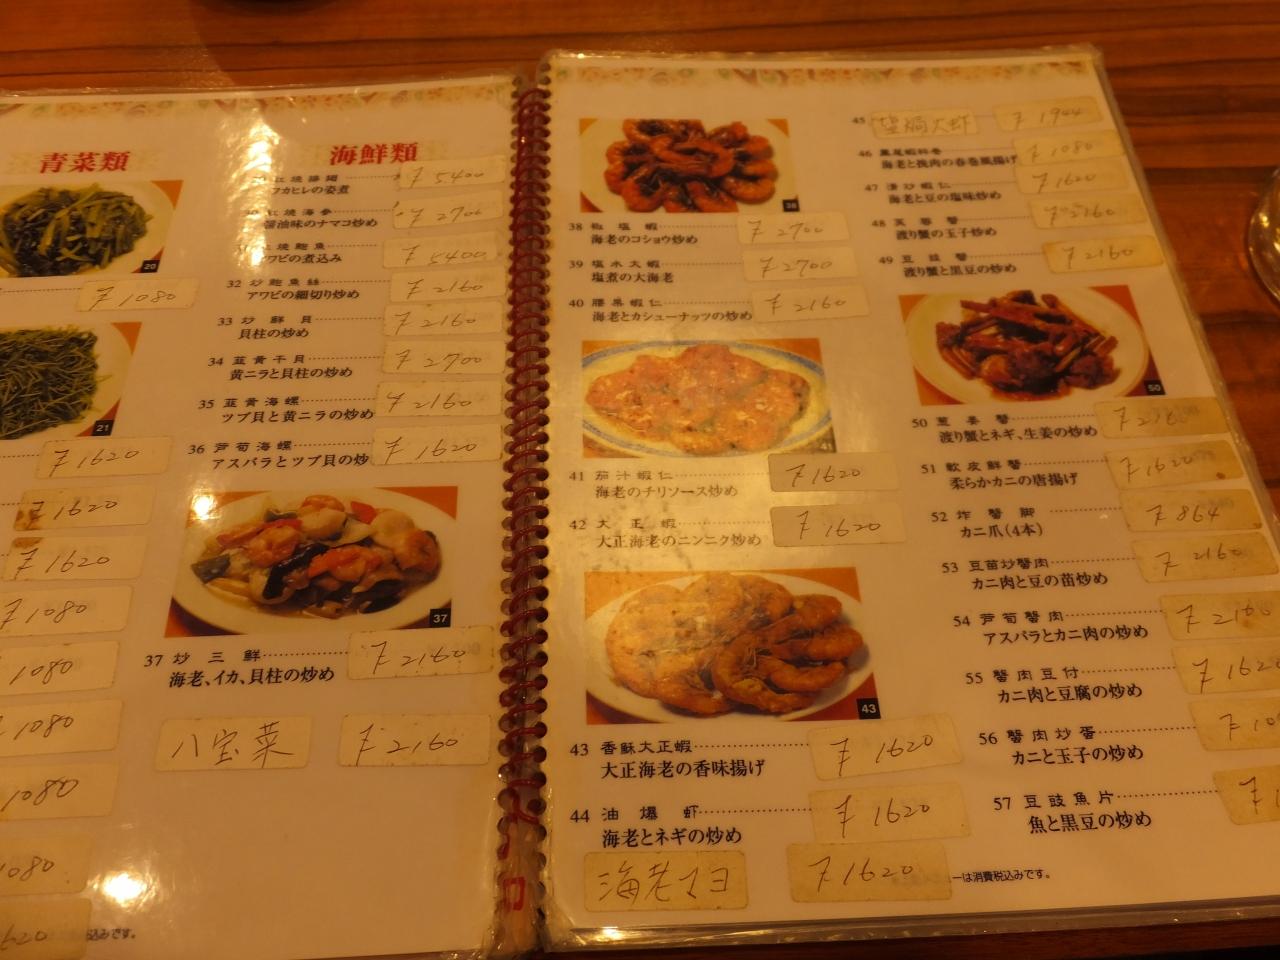 青菜類
20
¥1080
21
¥1620
¥1620
¥1620
¥1080
1080
1080
1080
1080
1620
海鮮類
¥5400
フカヒレの姿煮
紅焼海参 ¥2700
醤油味のナマコ炒め
焼鮑魚 ¥5400
アワビの煮込み
32 炒鮑魚絲 ¥2160
アワビの細切り炒め
33 炒鮮貝 ¥2160
貝柱の炒め
34 韮黄干貝 ¥2700
黄ニラと貝柱の炒め
35 韮黄海螺 ¥2160
ツブ貝と黄ニラの炒め
36 芦筍海螺 ¥1620
アスパラとツブ貝の炒
37
37 炒三鮮 ¥2160
海老、イカ、貝柱の炒め
八宝菜 ¥2160
38
38 椒塩蝦 ¥2700
海老のコショウ炒め
39 塩水大蝦 ¥2700
塩煮の大海老
40 腰果蝦仁 ¥2160
海老とカシューナッツの炒め
41
41 茄汁蝦仁 ¥1620
海老のチリソース炒め
42 大正蝦 ¥1620
大正海老のニンニク炒め
43
43 香酥大正蝦 ¥1620
大正海老の香味揚げ
44 油爆虾 ¥1620
海老とネギの炒め
海老マヨ ¥1620
45 塩焗大虾 ¥1944
46 鳳尾蝦科巻 ¥1080
海老と挽肉の春巻風揚げ
47 清炒蝦仁 ¥1620
海老と豆の塩味炒め
48 芙蓉蟹 ¥2160
渡り蟹の玉子炒め
49 豆豉蟹 ¥2160
渡り蟹と黒豆の炒め
50
50 葱姜蟹
渡り蟹とネギ、生姜の炒め
51 軟皮鮮蟹 ¥1620
柔らかカニの唐揚げ
52 炸蟹脚 ¥864
カニ爪(4本)
53 豆苗炒蟹肉 ¥2160
カニ肉と豆の苗炒め
54 芦筍蟹肉 ¥2160
アスパラとカニ肉の炒め
55 蟹肉豆付 ¥1620
カニ肉と豆腐の炒め
56 蟹肉炒蛋
カニと玉子の炒め
57 豆豉魚片
魚と黒豆の炒め
ーは消費税込みです。
込みです。